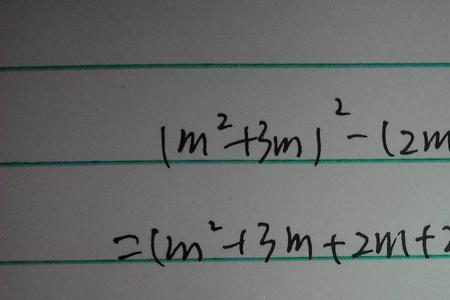 (m²+3m)²-(2m
=(m²+3m+2m+2